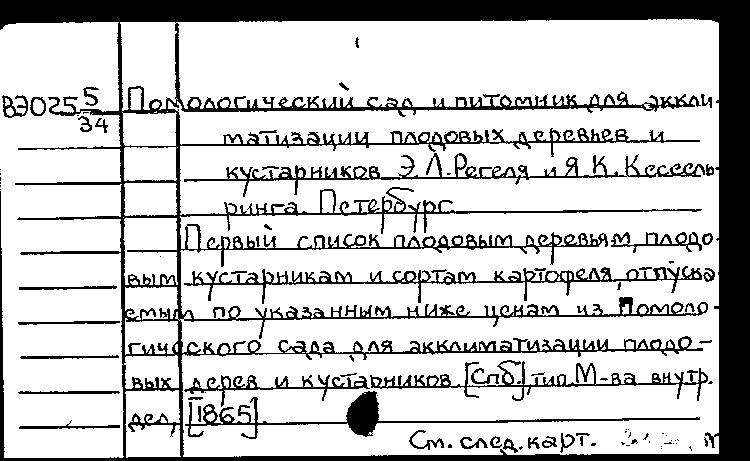 ВЭ025 5/34 Помологический сад и питомник для аккли-
матизации плодовых деревьев и
кустарников Э.Л.Регеля и Я.К.Кессель-
ринга. Петербург.
Первый список плодовым деревьям, плодо-
вым кустарникам и сортам картофеля, отпуска-
емым по указанным ниже ценам из Помоло-
гического сада для акклиматизации плодо-
вых дерев и кустарников. [Спб.], тип. М-ва внутр.
дел, [1865].
См. след. карт.